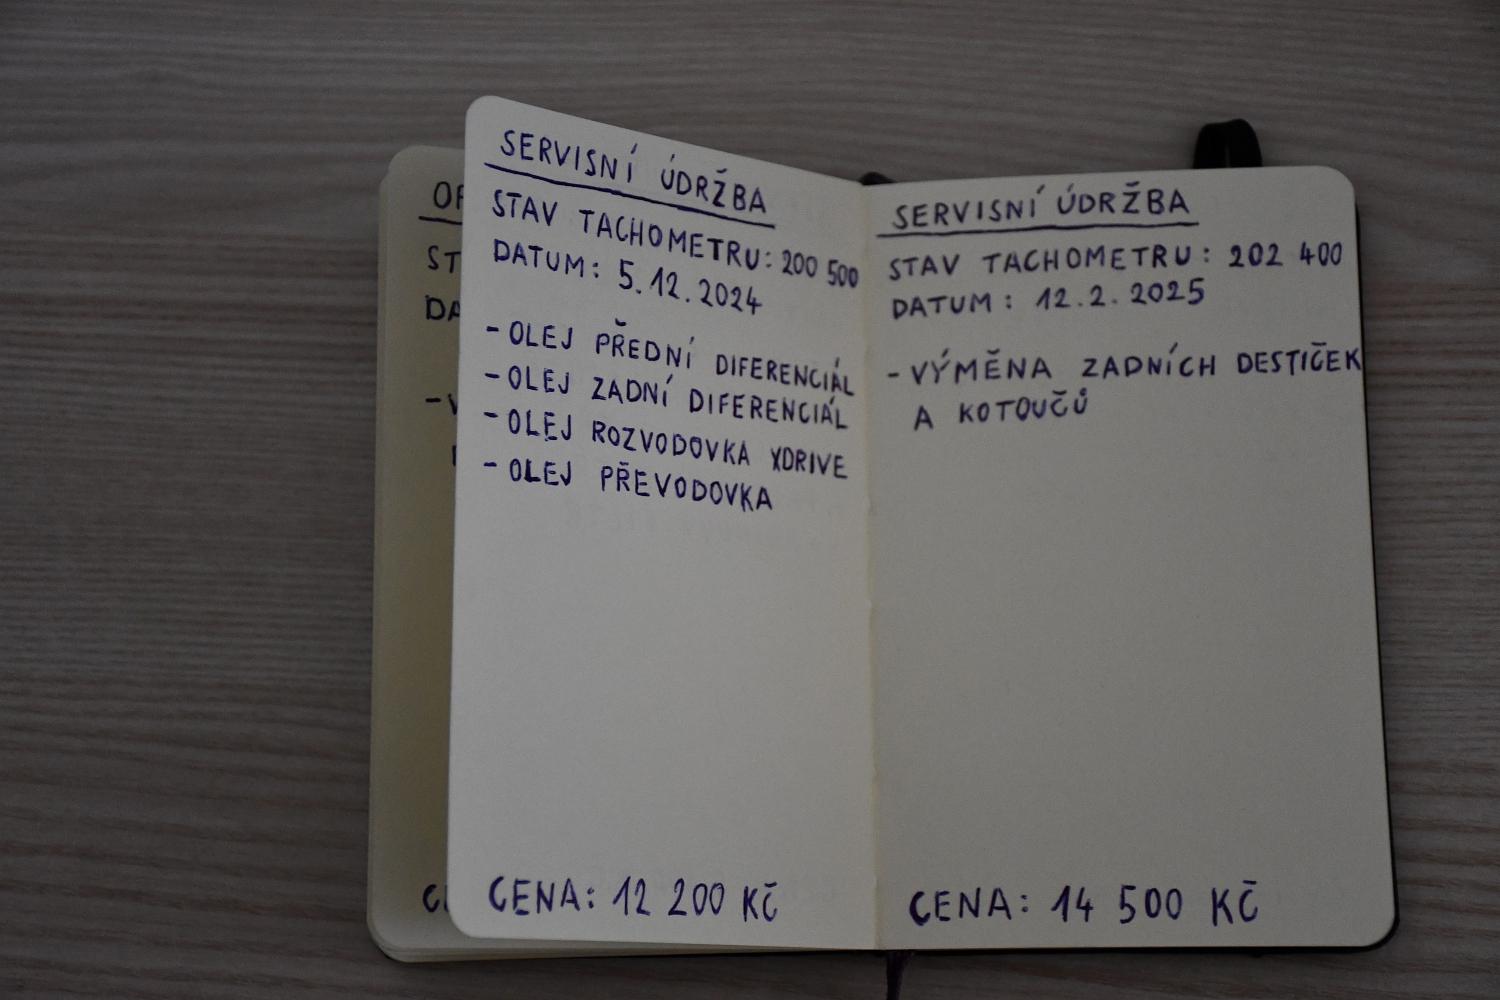 SERVISNÍ ÚDRŽBA
STAV TACHOMETRU: 200 500
DATUM: 5.12.2024
- OLEJ PŘEDNÍ DIFERENCIÁL
- OLEJ ZADNÍ DIFERENCIÁL
- OLEJ ROZVODOVKA XDRIVE
- OLEJ PŘEVODOVKA
CENA: 12 200 KČ
SERVISNÍ ÚDRŽBA
STAV TACHOMETRU: 202 400
DATUM: 12.2.2025
- VÝMĚNA ZADNÍCH DESTIČEK
A KOTOUČŮ
CENA: 14 500 KČ